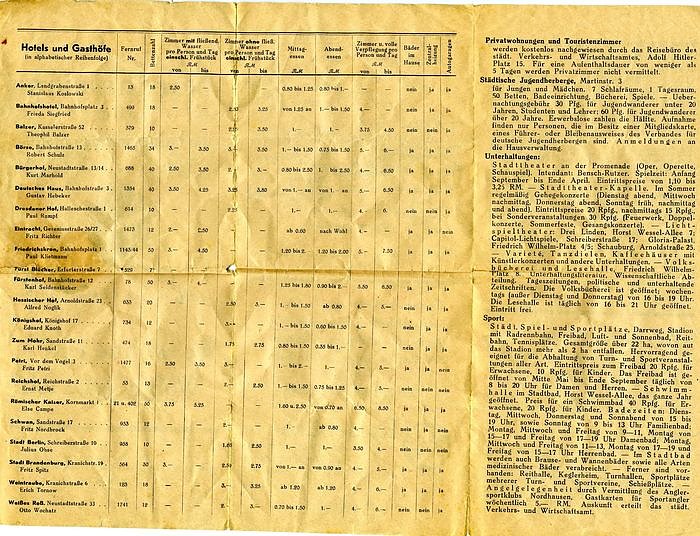 Hotels und Gasthöfe
(in alphabetischer Reihenfolge)
Fernruf Nr.
Bettenzahl
Zimmer mit fließend. Wasser pro Person und Tag einschl. Frühstück
RM
von bis
Zimmer ohne fließ. Wasser pro Person und Tag einschl. Frühstück
RM
von bis
Mittagessen
RM
Abendessen
RM
Zimmer u. volle Verpflegung pro Person und Tag
RM
von bis
Bäder im Hause
Zentralheizung
Autogaragen
Anker, Lendgrabenstraße 1
Stanislaus Koslowski
13 18 2.50 0.80 bis 1.20 nein ja ja
Bahnhofshotel, Bahnhofsplatz 3
Frieda Siegfried
3.25 von 1.25 an 1.— bis 1.50 nein ja ja
Balzer, Kusseler­straße 52
Theophil Balzer
579 10 3.50 3.75 4.50 nein nein ja
Börse, Bahnhofstraße 13
Robert Schulz
1465 34 3.— 3.50 3.— 1.— bis 1.50 0.75 bis 1.50 nein ja ja
Bürgerhof, Neustadtstraße 13/14
Kurt Marhold
688 40 2.50 3.50 0.80 bis 2.50 ja ja ja
Deutsches Haus, Bahnhofstraße
Gustav Hebeker
1384 40 3.50 4.25 3.25 3.80 von 1.— an 5.— 6.50 ja ja ja
Dresdener Hof, Halleschestraße 1
Paul Rampf
614 10 1.— nein ja ja
Eintracht, Geseniusstraße 26/27
Fritz Richter
1473 12 2.— 2.50 ab 0.60 nach Wahl nein ja ja
Friedrichskron, Bahnhofsplatz
Paul Kliebmann
1143/44 50 3.— 4.50 1.20 bis 2.— 1.20 bis 2.00 5.— 7.50 ja ja ja
Fürst Blücher, Erfurterstraße 7
529
Fürstenhof, Bahnhofstraße 12
Karl Seidenstücker
78 50 3.— 4.— 1.25 bis 1.80 0.90 bis 2.— 5.50 6.50 ja ja ja
Hessischer Hof, Arnoldstraße 23
Alfred Noglik
633 20 2.50 3.— 1.— ab 0.80 4.— 5.— nein ja ja
Königshof, Königshof 17
Eduard Knoth
734 12 1.— bis 1.50 0.60 bis 1.50 nein ja ja
Zum Mohr, Sandstraße 11
Karl Henkel
474 18 1.75 2.75 0.80 bis 1.25 0.35 bis 1.— nein nein ja
Petri, Vor dem Vogel 3
Fritz Petri
1477 16 2.50 3.50 1.— bis 2.— 1.— 4.— 5.— nein ja ja
Reichshof, Reichstraße 2
Ernst Metje
55 13 2.50 1.— bis 1.50 0.75 bis 1.25 nein nein ja
Römischer Kaiser, Kornmarkt
Else Campe
21 u. 402 50 3.75 5.25 1.60 u. 2.50 von 0.70 an 6.50 8.50 ja ja ja
Schwan, Sandstraße 17
Fritz Nordbrock
953 12 2.— 1.— ab 0.80 4.— nein nein ja
Stadt Berlin, Schreiberstraße 10
Julius Ohse
958 10 2.50 3.— 3.50 nein nein ja
Stadt Brandenburg, Kranichstr. 19
Fritz Spitz
564 30 3.— 2.50 2.75 von 1.— an von 0.90 an 4.— 5.— ja ja ja
Weintraube, Kranichstraße 6
Erich Tornow
123 18 3.— 3.25 ab 1.20 ab 1.20 4.— nein ja ja
Weißes Roß, Neustadtstraße 33
Otto Wochatz
1741 12 2.— 0.70 bis 1.50 1.— 4.— nein nein ja
Privatwohnungen und Touristenzimmer
werden kostenlos nachgewiesen durch das Reisebüro des
städt. Verkehrs- und Wirtschaftsamtes, Adolf Hitler-
Platz 15. Für eine Aufenthaltsdauer von weniger als
5 Tagen werden Privatzimmer nicht vermittelt.
Städtische Jugendherberge, Martinstr. 3
für Jungen und Mädchen. 7 Schlafräume, 1 Tagesraum,
50 Betten, Badeeinrichtung, Bücherei, Spiele. — Ueber-
nachtungsgebühr 30 Pfg. für Jugendwanderer unter 20
Jahren, Studenten und Lehrer; 60 Pfg. für Jugendwanderer
über 20 Jahre. Erwerbslose zahlen die Hälfte. Aufnahme
finden nur Personen, die im Besitz einer Mitgliedskarte,
eines Führer- oder Bleibenausweises des Verbandes für
deutsche Jugendherbergen sind. Anmeldungen an
die Hausverwaltung.
Unterhaltungen:
Stadttheater an der Promenade (Oper, Operette,
Schauspiel). Intendant: Bensch-Rutzer. Spielzeit: Anfang
September bis Ende April. Eintrittspreise von 1,10 bis
3,25 RM. — Stadttheater-Kapelle. Im Sommer
regelmäßig Gehegekonzerte (Dienstag abend, Mittwoch
nachmittag, Donnerstag abend, Sonntag früh, nachmittag
und abend). Eintrittspreise 20 Rpfg., nachmittags 15 Rpfg.,
bei Sonderveranstaltungen 30 Rpfg. (Feuerwerk, Doppel-
konzerte, Sommerfeste, Gesangkonzerte). — Licht-
spieltheater: Drei Linden, Horst Wessel-Allee 7;
Capitol-Lichtspiele, Schreiberstraße 17; Gloria-Palast,
Friedrich Wilhelm-Platz 4/5; Schauburg, Arnoldstraße 25.
— Varieté, Tanzdielen, Kaffeehäuser mit
Künstlerkonzerten und andere Unterhaltungen. — Volks-
bücherei und Lesehalle, Friedrich Wilhelm-
Platz 6. Unterhaltungsliteratur, Wissenschaftliche Ab-
teilung. Tageszeitungen, politische und unterhaltende
Zeitschriften. Die Volksbücherei ist geöffnet: wochen-
tags (außer Dienstag und Donnerstag) von 16 bis 19 Uhr.
Die Lesehalle ist täglich von 16 bis 21 Uhr geöffnet.
Eintritt frei.
Sport:
Städt. Spiel- und Sportplätze, Darrweg, Stadion
mit Radrennbahn, Freibad, Luft- und Sonnenbad, Reit-
bahn, Tennisplätze. Gesamtgröße über 22 ha, wovon auf
das Stadion mehr als 2 ha entfallen. Hervorragend ge-
eignet für die Abhaltung von Turn- und Sportveranstal-
tungen aller Art. Eintrittspreis zum Freibad 20 Rpfg. für
Erwachsene, 10 Rpfg. für Kinder. Das Freibad ist ge-
öffnet von Mitte Mai bis Ende September täglich von
8 bis 20 Uhr für Damen und Herren. — Schwimm-
halle im Stadtbad, Horst Wessel-Allee, das ganze Jahr
geöffnet. Preis für ein Schwimmbad 40 Rpfg. für Er-
wachsene, 20 Rpfg. für Kinder. Badezeiten: Diens-
tag, Mittwoch, Donnerstag und Sonnabend von 15 bis
19 Uhr, sowie Sonntag von 9 bis 13 Uhr Familienbad;
Montag, Mittwoch und Freitag von 9—11, Montag von
15—17 und Freitag von 17—19 Uhr Damenbad; Montag,
Mittwoch und Freitag von 11—13, Montag von 17—19 und
Freitag von 15—17 Uhr Herrenbad. — Im Stadtbad
werden auch Brause- und Wannenbäder sowie alle Arten
medizinischer Bäder verabreicht. — Ferner sind vor-
handen: Reithalle, Kegelheim, Turnhallen, Sportplätze
mehrerer Turn- und Sportvereine, Schießplätze. —
Angelgelegenheit durch Vermittlung des Angler-
sportklubs Nordhausen, Gastkarten für Sportangler
wöchentlich 5,— RM. Auskunft erteilt das städt.
Verkehrs- und Wirtschaftsamt.